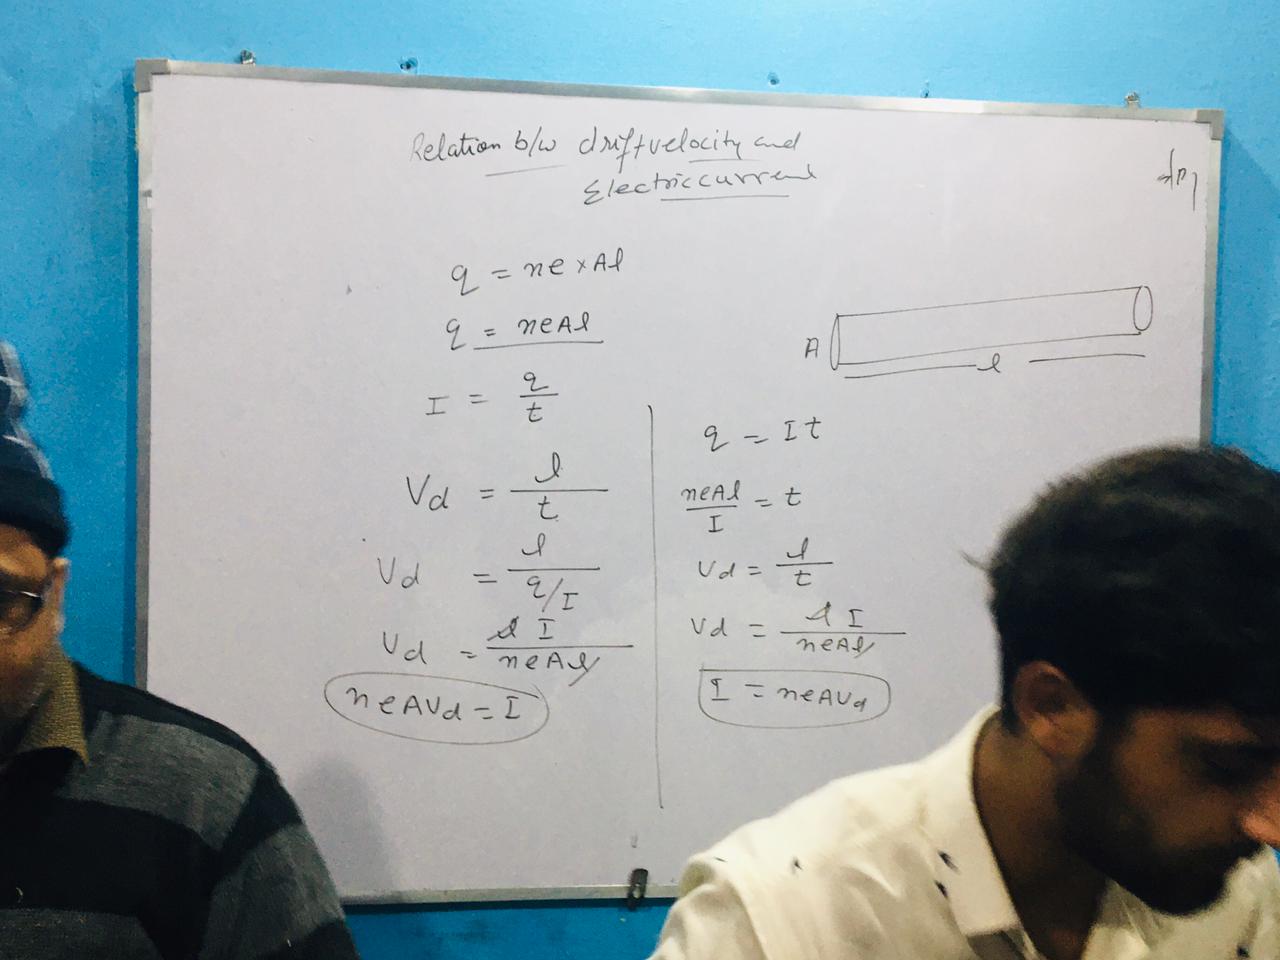 Relation b/w drift velocity and
Electric current
q = ne × Al
q = neAl
I = q/t
Vd = l/t
Vd = l/(q/I)
Vd = l I/neAl
neAVd = I
A
l
q = It
neAl/I = t
Vd = l/t
Vd = l I/neAl
I = neAVd